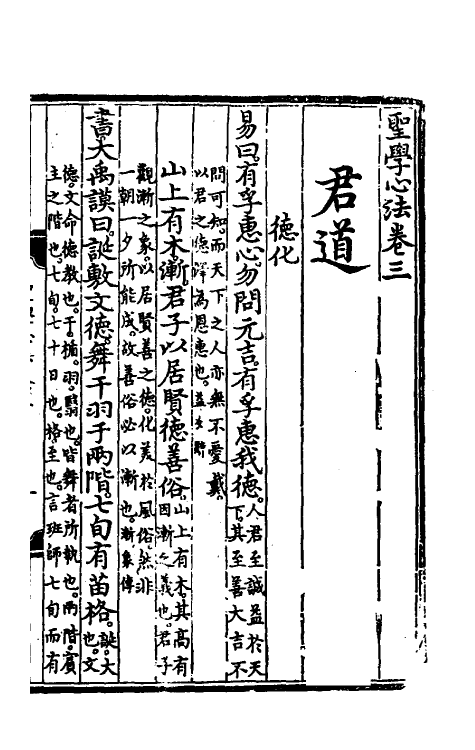 聖學心法卷三
君道
德化
易曰有孚惠心勿問元吉有孚惠我德人君至誠益於天
下其至善大吉不
問可知而天下之人亦無不愛戴
以君之德澤為恩惠也益爻辭
山上有木漸君子以居賢德善俗山上有木其高有
因漸之義也君子
觀漸之象以居賢善之德化美於風俗然非
一朝一夕所能成故善俗必以漸也漸象傳
書大禹謨曰誕敷文德舞干羽于兩階七旬有苗格誕大
也文
德文命德教也干楯羽翳也皆舞者所執也兩階賓
主之階也七旬七十日也格至也言班師七旬而有